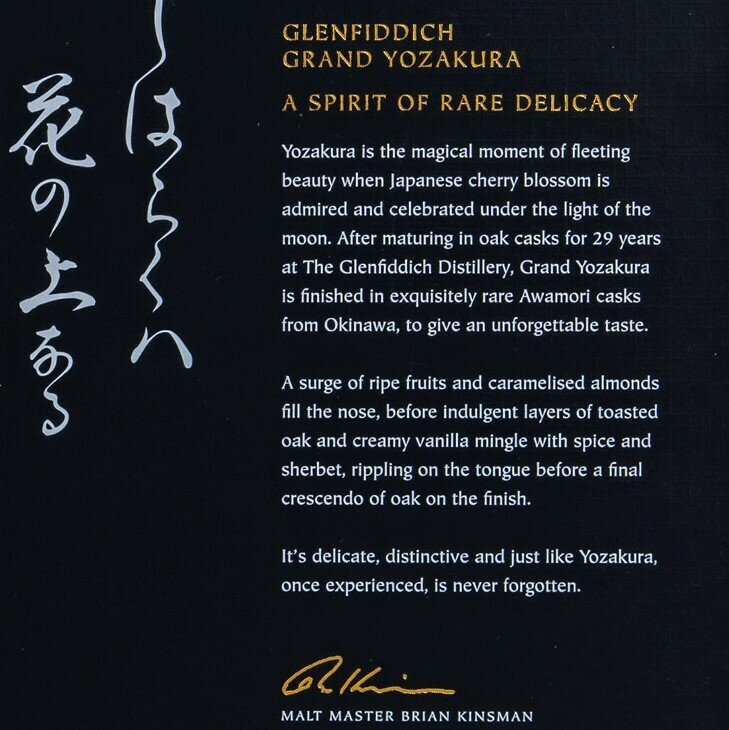 しはらくハ
花の上なる
GLENFIDDICH
GRAND YOZAKURA
A SPIRIT OF RARE DELICACY
Yozakura is the magical moment of fleeting
beauty when Japanese cherry blossom is
admired and celebrated under the light of the
moon. After maturing in oak casks for 29 years
at The Glenfiddich Distillery, Grand Yozakura
is finished in exquisitely rare Awamori casks
from Okinawa, to give an unforgettable taste.
A surge of ripe fruits and caramelised almonds
fill the nose, before indulgent layers of toasted
oak and creamy vanilla mingle with spice and
sherbet, rippling on the tongue before a final
crescendo of oak on the finish.
It's delicate, distinctive and just like Yozakura,
once experienced, is never forgotten.
MALT MASTER BRIAN KINSMAN